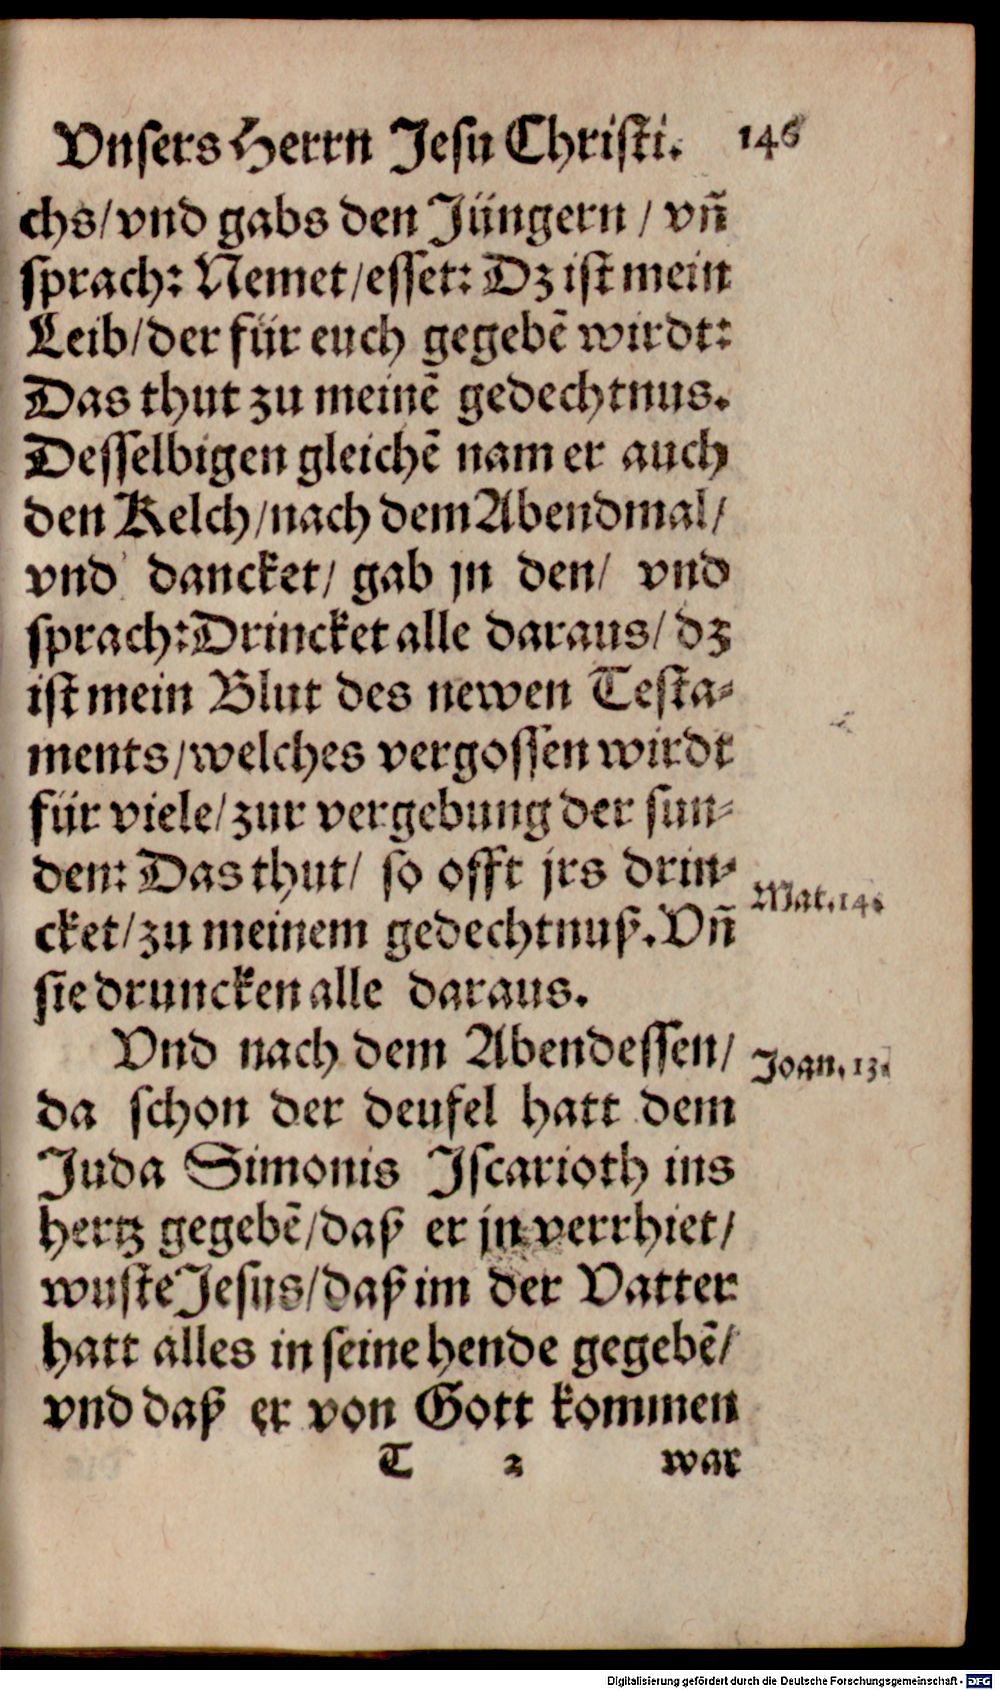 Vnsers Herrn Jesu Christi. 146
chs/vnd gabs den Jüngern / vn̄
sprach: Nemet/esset: Dz ist mein
Leib/der für euch gegebē wirdt:
Das thut zu meinē gedechtnus.
Desselbigen gleichē nam er auch
den Kelch/nach dem Abendmal/
vnd dancket/ gab jn den/ vnd
sprach: Drincket alle daraus/ dz
ist mein Blut des newen Testa⸗
ments/welches vergossen wirdt
für viele/zur vergebung der sun⸗
den: Das thut/ so offt jrs drin⸗
Mat. 14.
cket/zu meinem gedechtnuß. Vn̄
sie druncken alle daraus.
Vnd nach dem Abendessen/
Joan. 13.
da schon der deufel hatt dem
Juda Simonis Jscarioth ins
hertz gegebē/daß er jn verrhiet/
wuste Jesus/daß im der Vatter
hatt alles in seine hende gegebē/
vnd daß er von Gott kommen
T 2 war
Digitalisierung gefördert durch die Deutsche Forschungsgemeinschaft - DFG